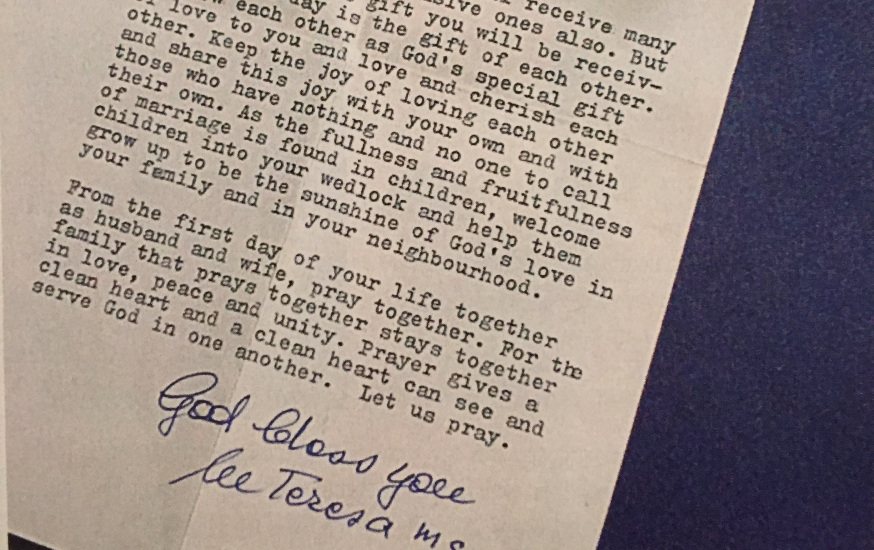 receive many
sive ones also. But
gift you will be receiv-
day is the gift of each other.
each other as God's special gift
love to you and love and cherish each
other. Keep the joy of loving each other
and share this joy with your own and with
those who have nothing and no one to call
their own. As the fullness and fruitfulness
of marriage is found in children, welcome
children into your wedlock and help them
grow up to be the sunshine of God's love in
your family and in your neighbourhood.
From the first day of your life together
as husband and wife, pray together. For the
family that prays together stays together
in love, peace and unity. Prayer gives a
clean heart and a clean heart can see and
serve God in one another. Let us pray.
God bless you
lee Teresa mc